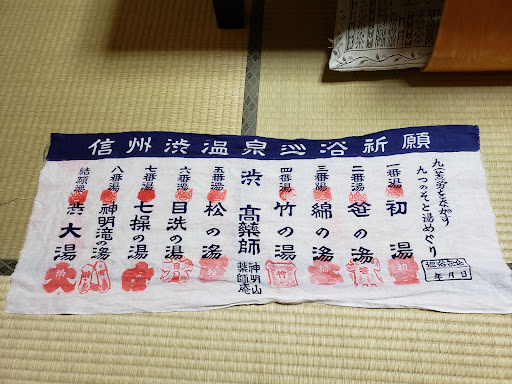 信州渋温泉巡浴祈願
九(苦)労をながす
九つのそと湯めぐり
巡浴記念
年 月 日
一番湯
初湯
二番湯
笹の湯
三番湯
綿の湯
四番湯
竹の湯
渋高薬師
神明山
薬師庵
五番湯
松の湯
六番湯
目洗の湯
七番湯
七操の湯
八番湯
神明滝の湯
結願湯
渋大湯